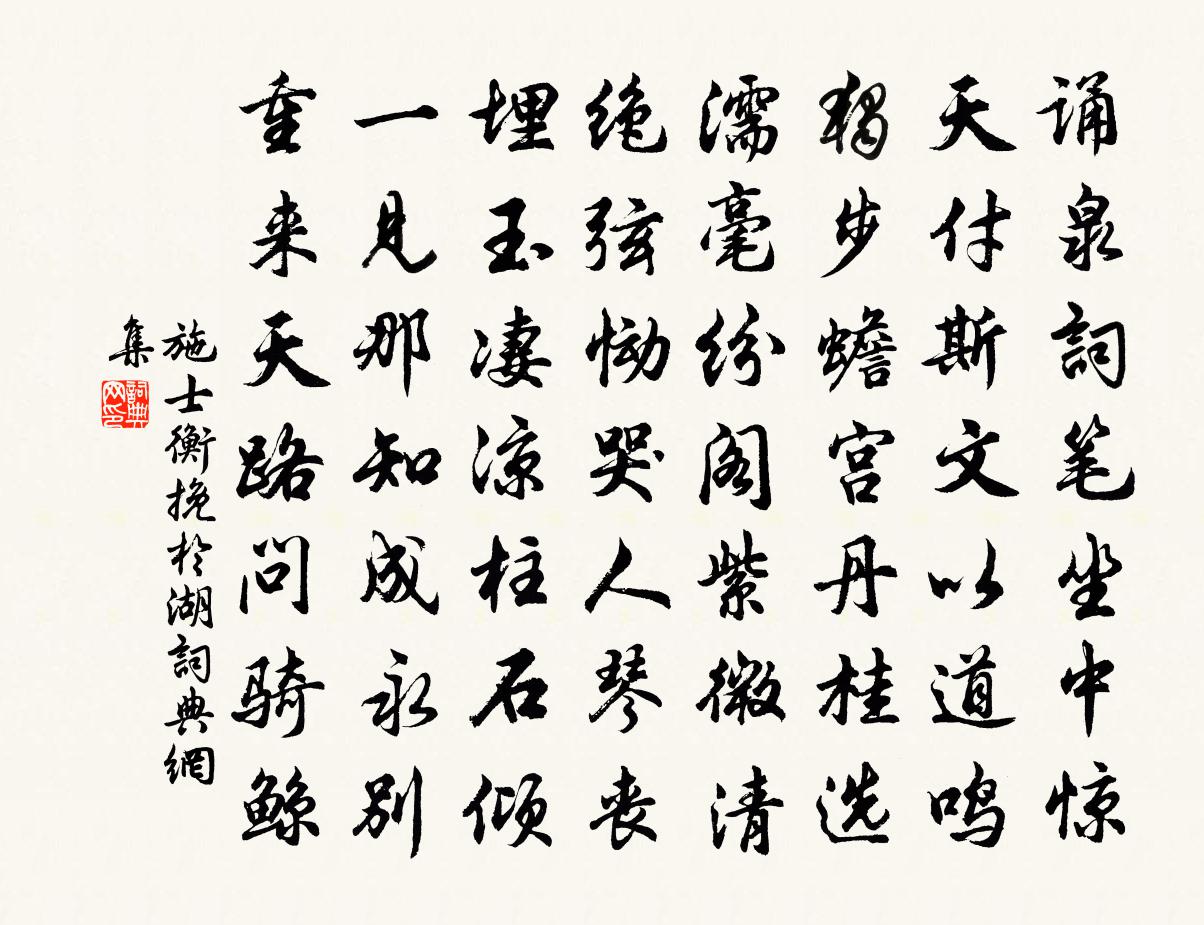 诵泉词笔坐中惊
天付斯文以道鸣
独步蟾宫丹桂选
濡毫纷阁紫微清
绝弦恸哭人琴丧
埋玉凄凉柱石倾
一见那知成永别
重来天路问骑鲸
施士衡挽於湖詞典網
集
詞典网印